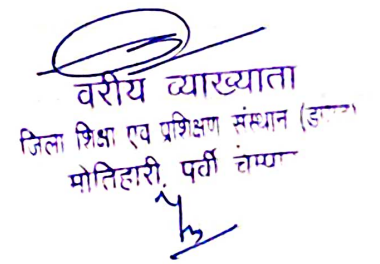 वरीय व्याख्याता
जिला शिक्षा एव प्रशिक्षण संस्थान
मोतिहारी, पर्वी